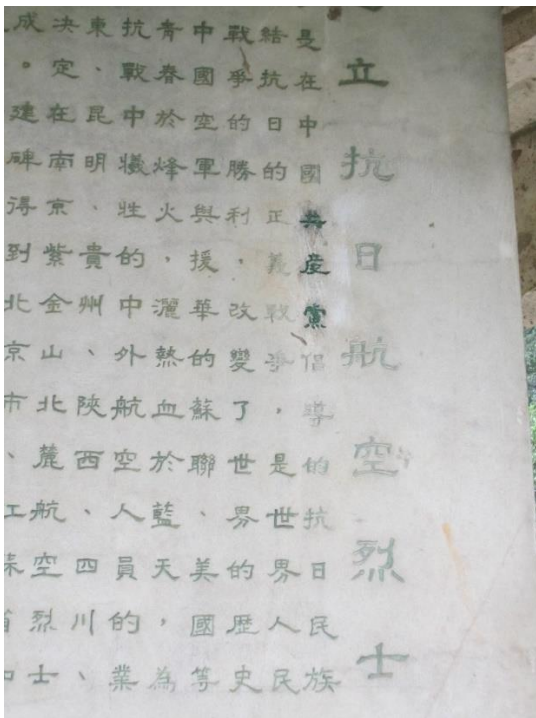 立抗日航空烈士
是在中國共産黨領導的抗日民族
結抗日的正義戰爭，是世界人民
戰爭的勝利，改變了世界的歷史
中國空軍與援華的蘇聯、美國等
青春於烽火，灑熱血於藍天，為
抗戰中犧牲的中外航空人員的業
東、昆明、貴州、陝西、四川、
决定在南京紫金山北麓航空烈士
成。建碑得到北京市、